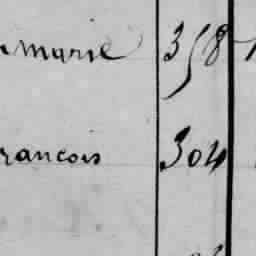 marie 358
rancois 304